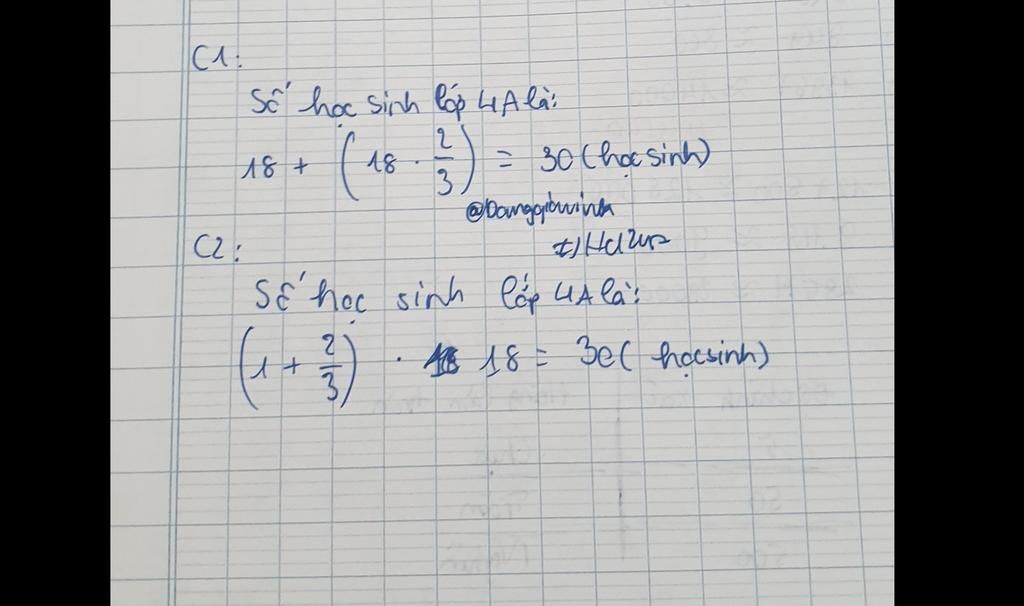 C1:
Số học sinh lớp 4A là:
18 + (18 · 2/3) = 30 (học sinh)
C2:
Số học sinh lớp 4A là:
(1 + 2/3) · 18 = 30 (học sinh)